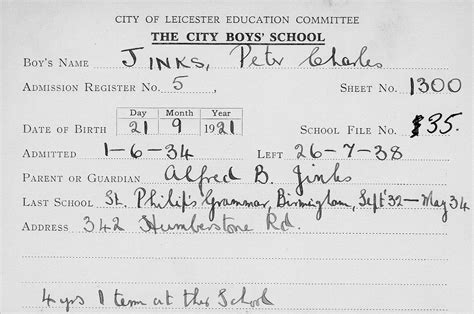 CITY OF LEICESTER EDUCATION COMMITTEE
THE CITY BOYS' SCHOOL
BOY'S NAME JINKS, Peter Charles
ADMISSION REGISTER NO. 5 SHEET NO. 1300
Day Month Year
DATE OF BIRTH 21 9 1921 SCHOOL FILE NO. 835.
ADMITTED 1-6-34 LEFT 26-7-38
PARENT OR GUARDIAN Alfred B. Jinks
LAST SCHOOL St. Philip's Grammar, Birmingham, Sept '32-May 34
ADDRESS 342 Humberstone Rd.
4 yrs 1 term at this School